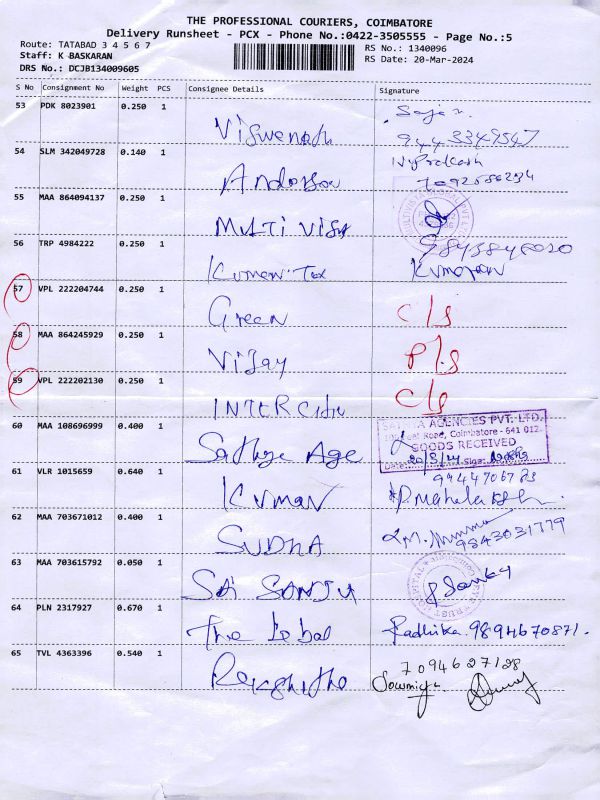 THE PROFESSIONAL COURIERS, COIMBATORE
Delivery Runsheet - PCX - Phone No.:0422-3505555 - Page No.:5
Route: TATABAD 3 4 5 6 7
Staff: K BASKARAN
DRS No.: DCJB134009605
RS No.: 1340096
RS Date: 20-Mar-2024
S No Consignment No Weight PCS Consignee Details Signature
53 PDK 8023901 0.250 1
Viswanath 9443349547
54 SLM 342049728 0.140 1
Anderson
55 MAA 864094137 0.250 1
MULTI VISA
56 TRP 4984222 0.250 1
Kumaran
57 VPL 222204744 0.250 1
Green C/s
58 MAA 864245929 0.250 1
Vijay P/s
59 VPL 222202130 0.250 1
INTER C/s
60 MAA 108696999 0.400 1
Sathya Age
AGENCIES PVT. LTD.
Road, Coimbatore - 641 012
GOODS RECEIVED
Date: 20/3/24 Sign:
61 VLR 1015659 0.640 1
Kumar
62 MAA 703671012 0.400 1
SUDHA 9843031779
63 MAA 703615792 0.050 1
Sai SANJU
64 PLN 2317927 0.670 1
The Radhika. 9894670871.
65 TVL 4363396 0.540 1
7094627128
Rakshitha Sowmiya